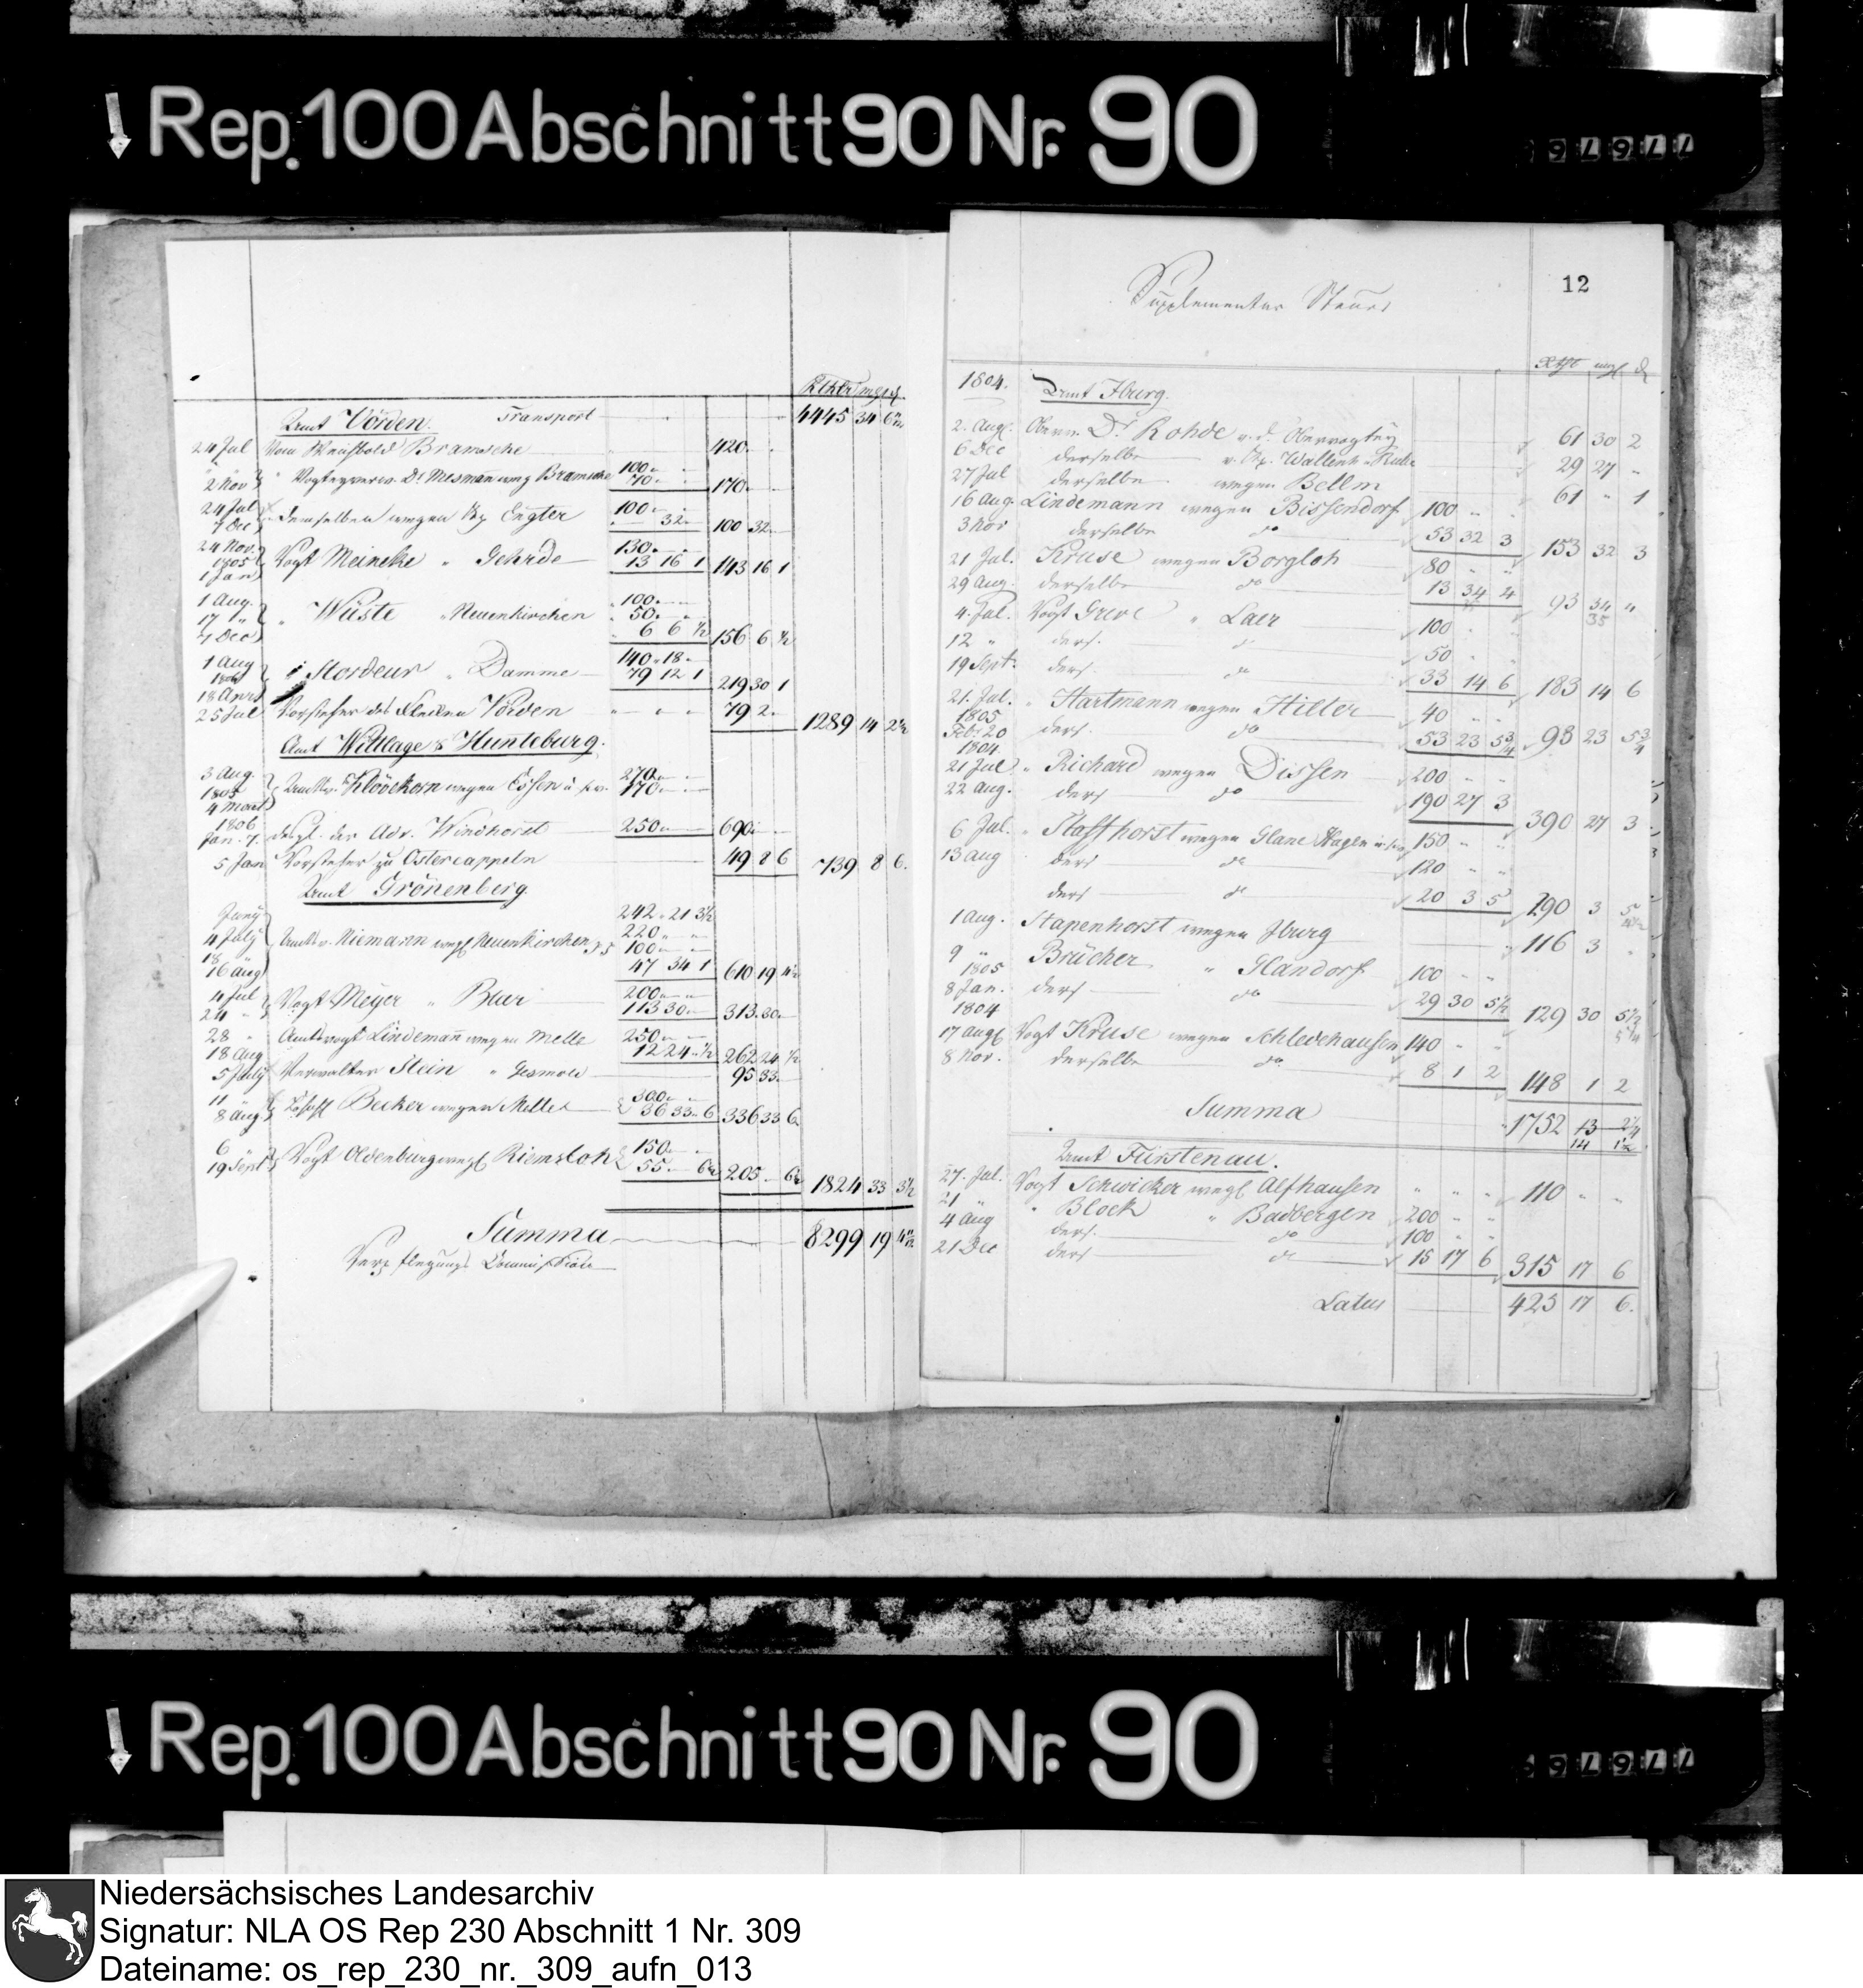 Rep. 100 Abschnitt 90 Nr. 90
77676
Rthlr mgl d.
Amt Vörden. Transport 4445 34
24 Jul Bramsche 420
100
2 Nov Vogteyverw. Dr Mesmann weg Bramsche 70 170
24 Jul 100
7 Dec demselben wegen Engter 32 100 32
24 Nov. 130
1805 Vogt Meineke " Gehrde 13 16 1 143 16 1
1 Jan
1 Aug. 100
17 " " Wüste " Neuenkirchen 50
4 Dec 6 6 ½ 156 6 ½
1 Aug 140 18
Stordeur " Damme 79 12 1 219 30 1
18 April
25 Jul Vorsteher des Flecken Vörden 79 2 1289 14 2½
Amt Wittlage & Hunteburg.
3 Aug. 270
1805 Klövekorn wegen Essen 170
4 Mart
1806
Jan. 7. desgl. der Adv. Windhorst 250 690
5 Jan Vorsteher zu Ostercappeln 49 8 6 739 8 6.
Amt Grönenberg
Juny 242 21 3½
4 July 220
18 Niemann wegl Neuenkirchen 100
16 Aug 47 34 1 610 19 4½
4 Jul 200
24 " Vogt Meyer " Buer 113 30 313 30
28 " Amtsvogt Lindemann wegen Melle 250
18 Aug 12 24 ½ 262 24 ½
5 July Verwalter Stein " Gesmold 95 33
11 300
8 Aug Becker wegen Melle 36 33 6 336 33 6
6 150
19 Sept Vogt Oldenburg wegl Riemsloh 55 6½ 205 6½ 1824 33 3½
Summa 8299 19
Verpflegungs Commission
12
Supplementar Steuer
mgl d
1804. Amt Iburg.
2. Augl. Dr Rohde v. d. Obervogtey 61 30 2
6 Dec derselbe 29 27 "
27 Jul derselbe wegen Bellm 61 " 1
16 Aug. Lindemann wegen Bissendorf 100 " "
3 Nov derselbe do 53 32 3 153 32 3
21 Jul. Kruse wegen Borgloh 80 " "
29 Aug. derselbe do 13 34 4 93 34 4
35
4. Jul. Vogt Greve " Laer 100
12 " ders. " 50
19 Sept. ders. do 33 14 6 183 14 6
21. Jul. " Hartmann wegen Hilter 40
1805
Feb. 20 ders. do 53 23 5¾ 93 23 5¾
1804.
21 Jul " Richard wegen Dissen 200 " "
22 Aug. ders do 190 27 3 390 27 3
6 Jul. " Staffhorst wegen Glane Hagen 150 " "
13 Aug ders do 120 " "
ders do 20 3 5 290 3 5
1 Aug. Stapenhorst wegen Iburg 116 3 "
9 " Brücher " Glandorf 100 " "
1805
8 Jan. ders do 29 30 5½ 129 30 5½
1804
17 Augl Vogt Kruse wegen Schledehausen 140 " "
8 Nov. derselbe do 8 1 2 148 1 2
Summa 1752 13 2¼
14 1½
Amt Fürstenau.
27. Jul. Vogt Schwicker wegl Alfhausen " " " 110 " "
21 " " Block " Badbergen 200 " "
4 Aug ders. do 100 " "
21 Dec ders do 15 17 6 315 17 6
Latus 425 17 6.
Rep. 100 Abschnitt 90 Nr. 90
77676
Niedersächsisches Landesarchiv
Signatur: NLA OS Rep 230 Abschnitt 1 Nr. 309
Dateiname: os_rep_230_nr._309_aufn_013